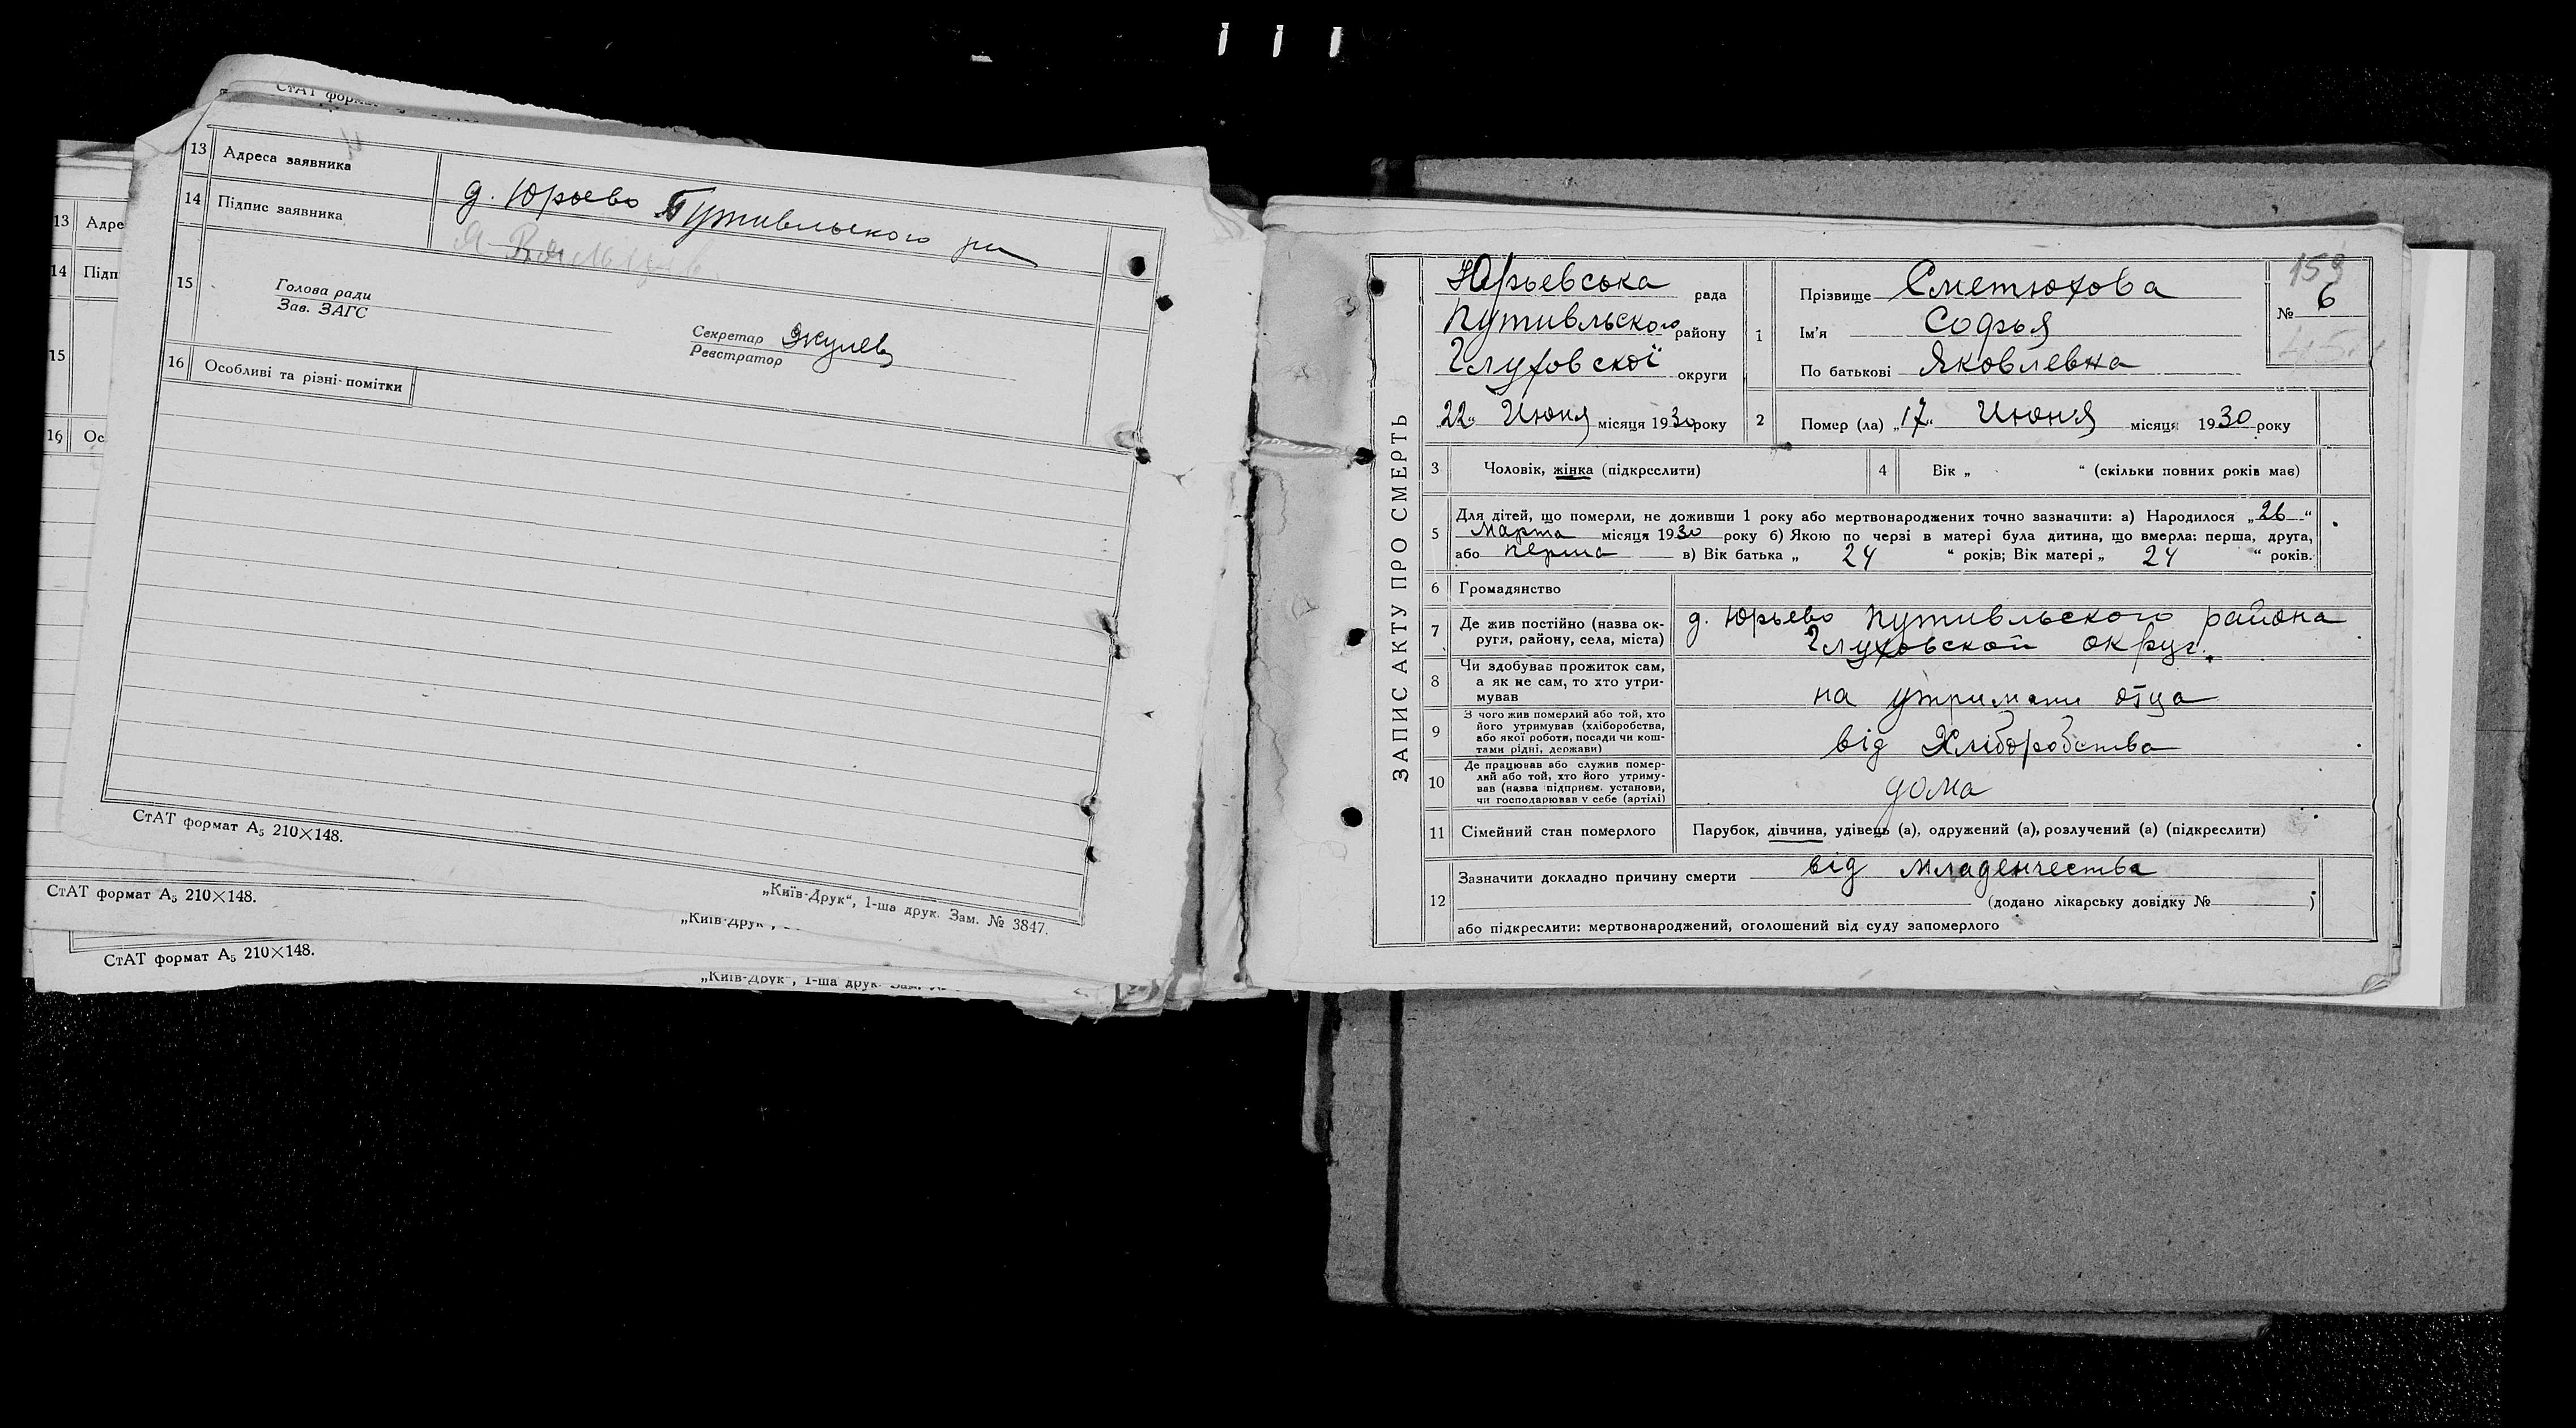 СтАТ форма
13 Адреса заявника д. Юрьево Путивльского
14 Підпис заявника
15 Голова ради
Зав. ЗАГС
Секретар
Реєстратор
16 Особливі та різні помітки
СтАТ формат А₅ 210×148.
„Київ-Друк“, 1-ша друк. Зам. № 3847.
13 Адре
14 Підп
15
16 Ос
СтАТ формат А₅ 210×148.
„Київ-Друк“,
СтАТ формат А₅ 210×148.
„Київ-Друк“, 1-ша друк. Зам.
ЗАПИС АКТУ ПРО СМЕРТЬ
Юрьевська рада
Путивльского району
Глуховскої округи
22 Июня місяця 1930 року
159
№ 6
1 Прізвище Сметюхова
Ім'я Софья
По батькові Яковлевна
2 Помер (ла) „17“ Июня місяця 1930 року
3 Чоловік, жінка (підкреслити)
4 Вік „ “ (скільки повних років має)
5 Для дітей, що померли, не доживши 1 року або мертвонароджених точно зазначити: а) Народилося „26“
Марта місяця 1930 року б) Якою по черзі в матері була дитина, що вмерла: перша, друга,
або перша в) Вік батька „ 24 “ років; Вік матері „ 24 “ років.
6 Громадянство
7 Де жив постійно (назва ок-
руги, району, села, міста)
д. Юрьево Путивльского района
Глуховской округ.
8 Чи здобував прожиток сам,
а як не сам, то хто утри-
мував
на утримани отца
9 З чого жив померлий або той, хто
його утримував (хліборобства,
або якої роботи, посади чи кош-
тами рідні, держави)
від Хліборобства
10 Де працював або служив помер-
лий або той, хто його утриму-
вав (назва підприєм. установи,
чи господарював у себе (артілі)
дома
11 Сімейний стан померлого Парубок, дівчина, удівець (а), одружений (а), розлучений (а) (підкреслити)
12 Зазначити докладно причину смерти від Младенчества
(додано лікарську довідку № )
або підкреслити: мертвонароджений, оголошений від суду запомерлого